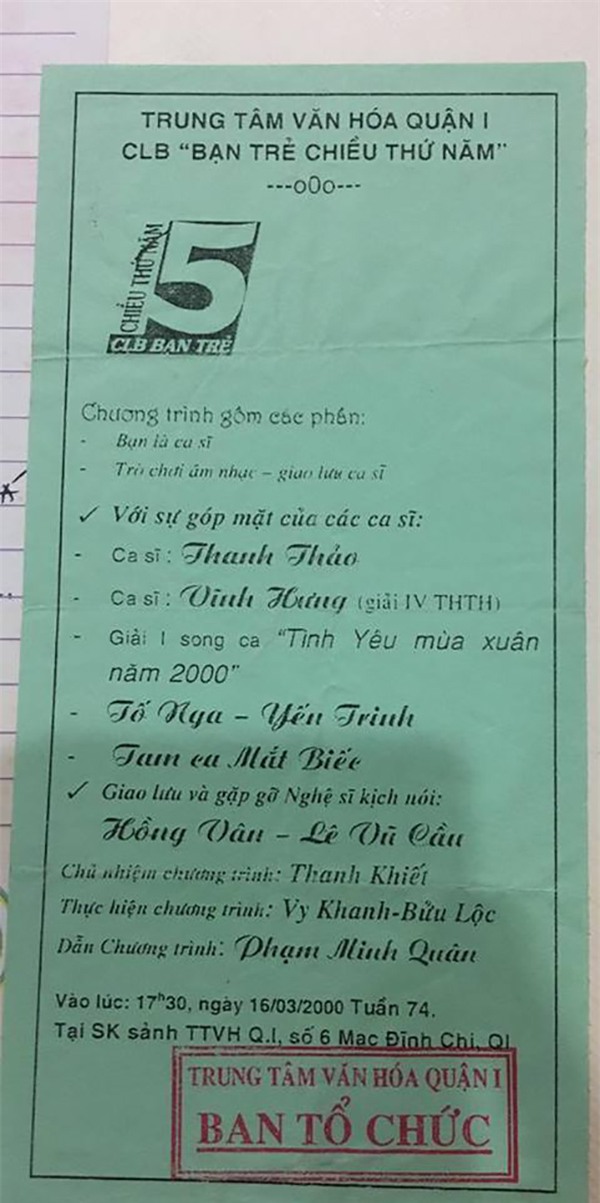 TRUNG TÂM VĂN HÓA QUẬN I
CLB "BẠN TRẺ CHIỀU THỨ NĂM"
---o0o---
CHIỀU THỨ NĂM
5
CLB BẠN TRẺ
Chương trình gồm các phần:
- Bạn là ca sĩ
- Trò chơi âm nhạc – giao lưu ca sĩ
✓ Với sự góp mặt của các ca sĩ:
- Ca sĩ : Thanh Thảo
- Ca sĩ : Vĩnh Hưng (giải IV THTH)
- Giải I song ca "Tình Yêu mùa xuân
năm 2000"
- Tố Nga – Yến Trinh
- Tam ca Mắt Biếc
✓ Giao lưu và gặp gỡ Nghệ sĩ kịch nói:
Hồng Vân – Lê Vũ Cầu
Chủ nhiệm chương trình: Thanh Khiết
Thực hiện chương trình: Vy Khanh-Bửu Lộc
Dẫn Chương trình: Phạm Minh Quân
Vào lúc: 17h30, ngày 16/03/2000 Tuần 74.
Tại SK sảnh TTVH Q.I, số 6 Mạc Đĩnh Chi, QI
TRUNG TÂM VĂN HÓA QUẬN I
BAN TỔ CHỨC